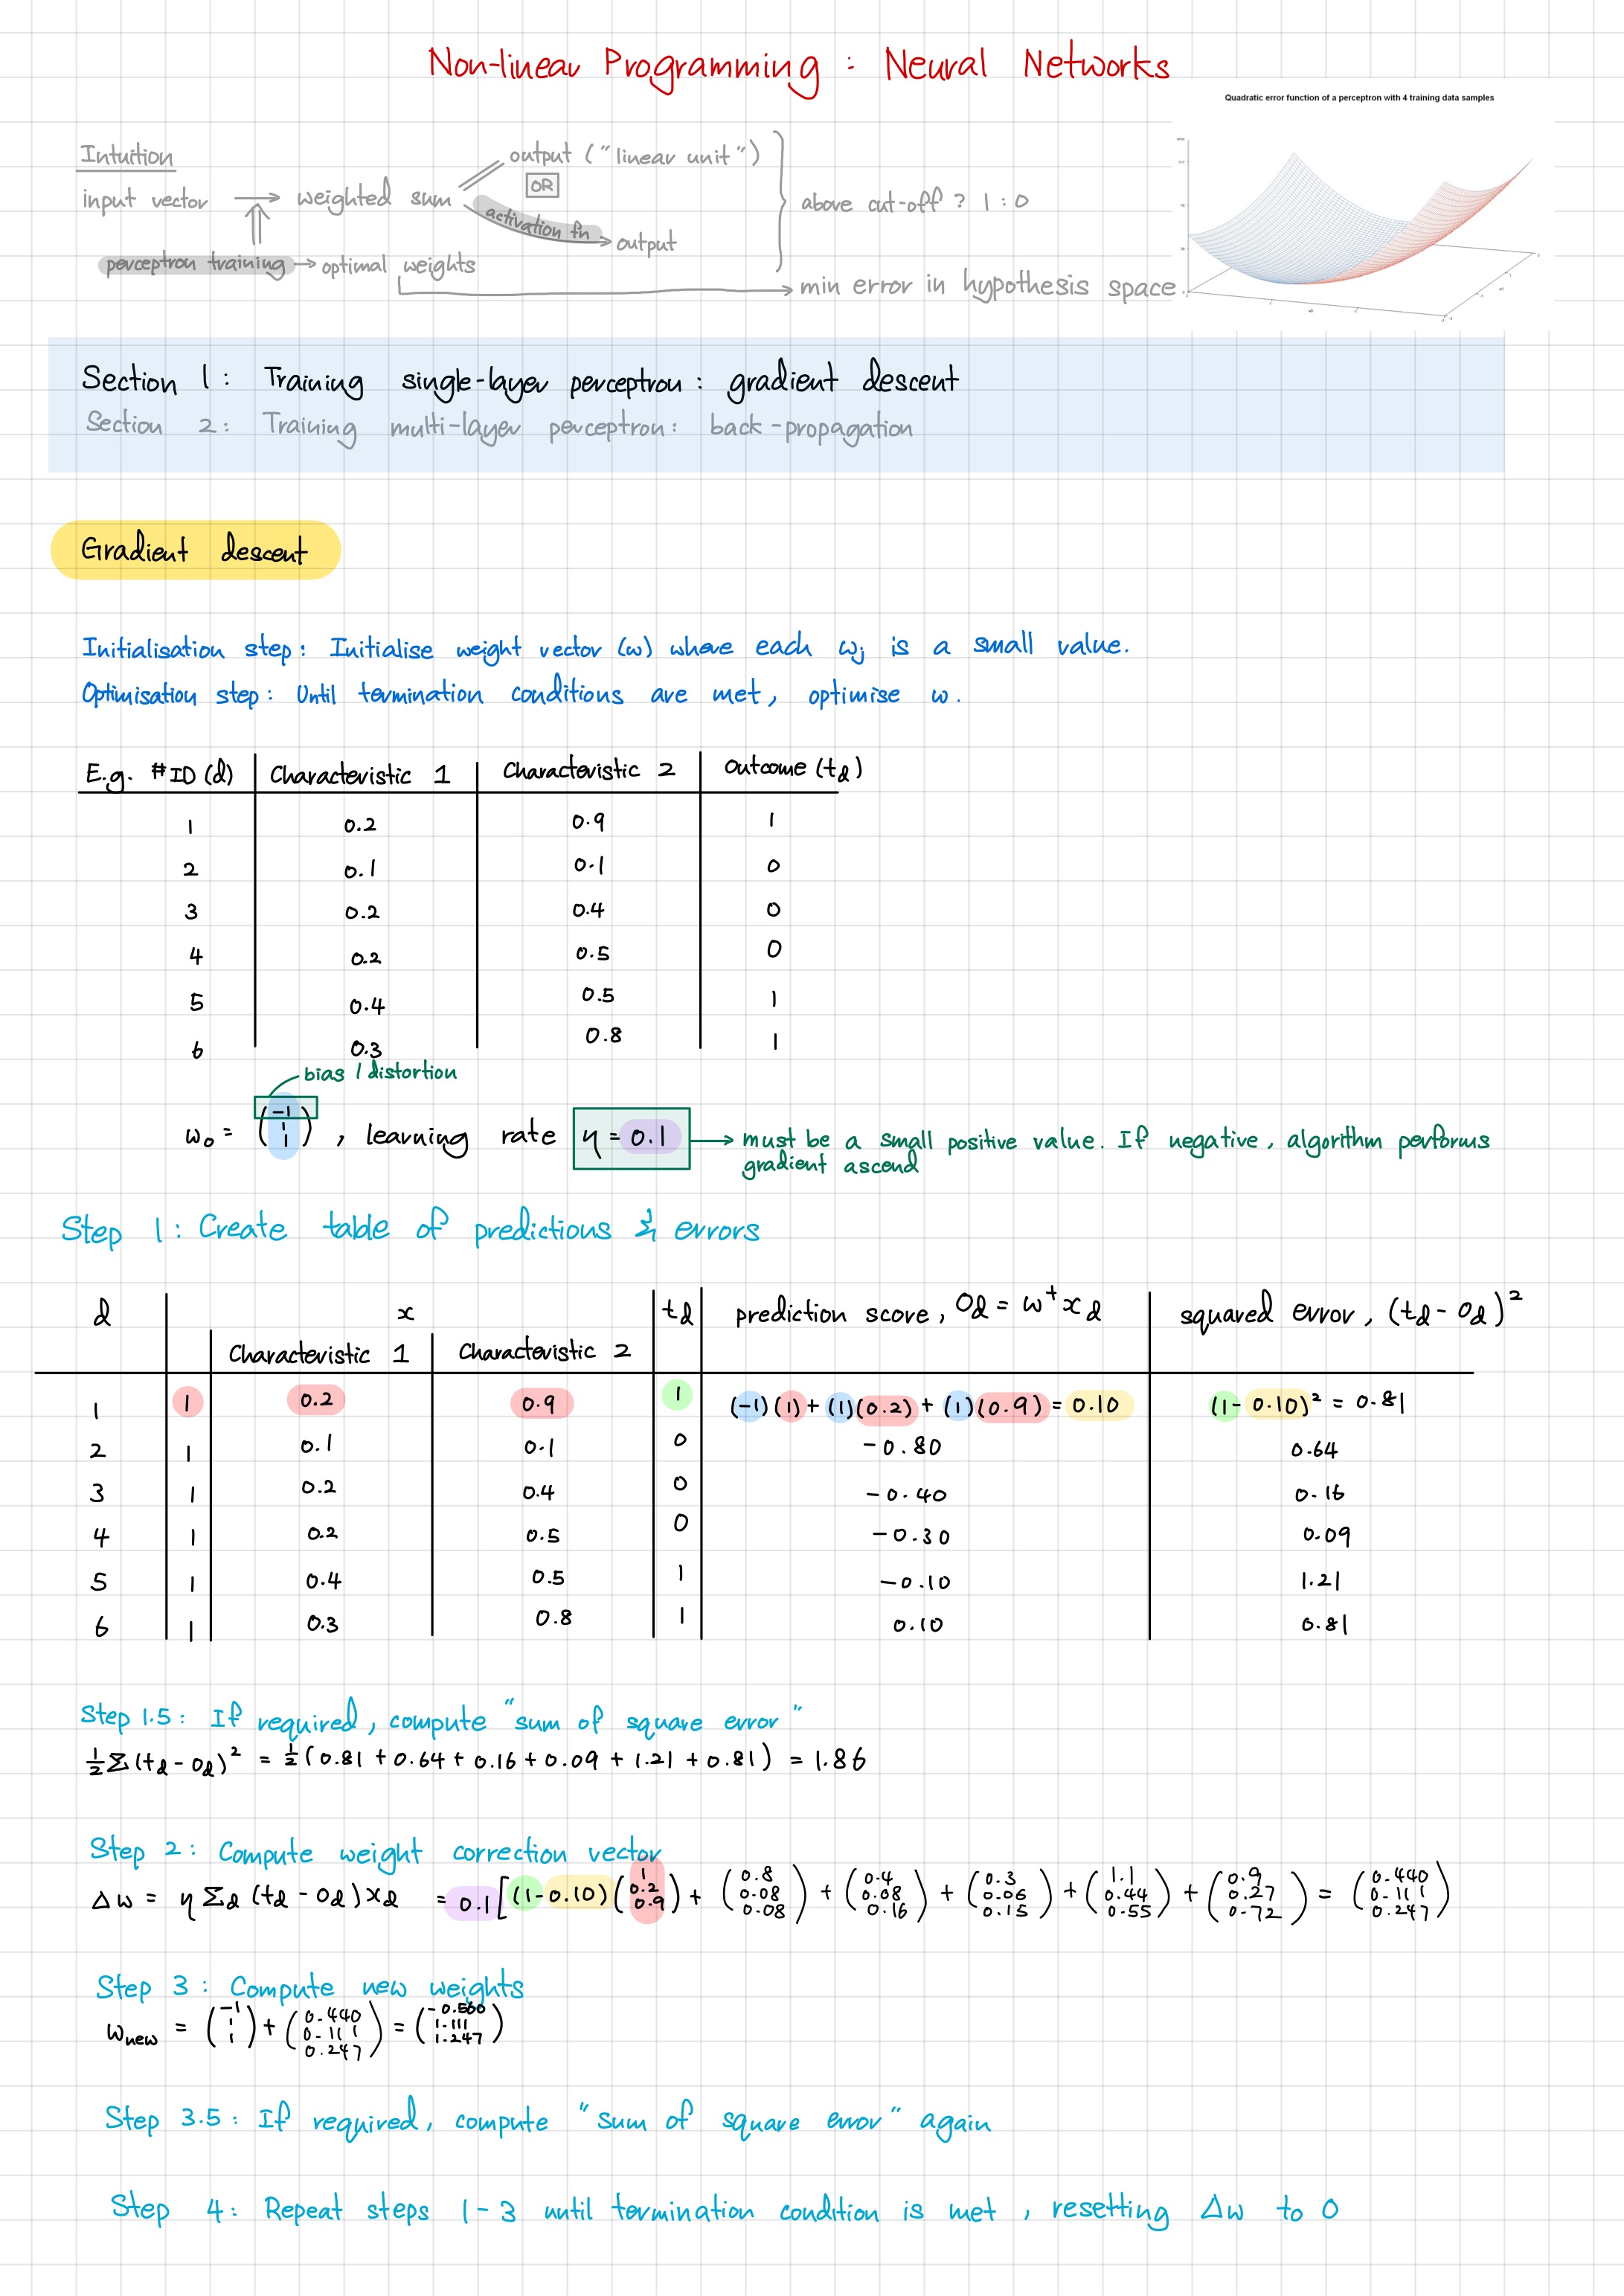 Non-linear Programming : Neural Networks
Quadratic error function of a perceptron with 4 training data samples
Intuition
input vector → weighted sum
output ("linear unit")
OR
activation fn → output
above cut-off ? 1 : 0
perceptron training → optimal weights
→ min error in hypothesis space
Section 1 : Training single-layer perceptron : gradient descent
Section 2 : Training multi-layer perceptron : back-propagation
Gradient descent
Initialisation step : Initialise weight vector (w) where each wⱼ is a small value.
Optimisation step : Until termination conditions are met, optimise w.
E.g. #ID (d) | Characteristic 1 | Characteristic 2 | Outcome (t_d)
1 | 0.2 | 0.9 | 1
2 | 0.1 | 0.1 | 0
3 | 0.2 | 0.4 | 0
4 | 0.2 | 0.5 | 0
5 | 0.4 | 0.5 | 1
6 | 0.3 | 0.8 | 1
bias / distortion
w₀ = (-1 1 1) , learning rate η = 0.1 → must be a small positive value. If negative, algorithm performs
gradient ascend
Step 1 : Create table of predictions & errors
d | x | t_d | prediction score, O_d = w⁺x_d | squared error, (t_d - O_d)²
Characteristic 1 | Characteristic 2
1 | 1 | 0.2 | 0.9 | 1 | (-1)(1) + (1)(0.2) + (1)(0.9) = 0.10 | (1 - 0.10)² = 0.81
2 | 1 | 0.1 | 0.1 | 0 | -0.80 | 0.64
3 | 1 | 0.2 | 0.4 | 0 | -0.40 | 0.16
4 | 1 | 0.2 | 0.5 | 0 | -0.30 | 0.09
5 | 1 | 0.4 | 0.5 | 1 | -0.10 | 1.21
6 | 1 | 0.3 | 0.8 | 1 | 0.10 | 0.81
Step 1.5 : If required, compute "sum of square error"
½Σ(t_d - O_d)² = ½(0.81 + 0.64 + 0.16 + 0.09 + 1.21 + 0.81) = 1.86
Step 2 : Compute weight correction vector
Δw = ηΣ_d (t_d - O_d)x_d = 0.1[(1 - 0.10)(1 0.2 0.9) + (0.8 0.08 0.08) + (0.4 0.08 0.16) + (0.3 0.06 0.15) + (1.1 0.44 0.55) + (0.9 0.27 0.72) = (0.440 0.111 0.247)
Step 3 : Compute new weights
w_new = (-1 1 1) + (0.440 0.111 0.247) = (-0.560 1.111 1.247)
Step 3.5 : If required, compute "sum of square error" again
Step 4 : Repeat steps 1-3 until termination condition is met, resetting Δw to 0